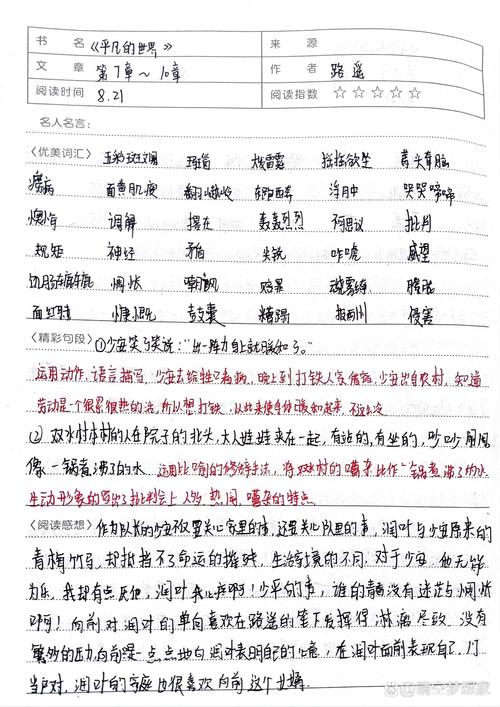 书 名 《平凡的世界》 来 源
文 章 第7章~10章 作 者 路遥
阅读时间 8.21 阅读指数 ☆☆☆☆☆
名人名言:
〈优美词汇〉 五彩斑斓 摇摇欲坠 蓬头垢面
面黄肌瘦 浮肿 哭哭啼啼
懊悔 调解 摆在 轰轰烈烈 批判
规矩 神经 矛盾 尖锐 咋唬 威望
惆怅 赔累 朦胧
慷慨 鼓囊 糟蹋 侵害
〈精彩句段〉 ①少安笑了笑说:“出一阵力身上就暖和了。”
运用动作,语言描写,少安去给牲口看病,晚上到打铁人家借宿,少安出自农村,知道
劳动是一个很累很热的活,所以想打铁,从此来使自己暖和起来,不这么冷
② 双水村本村的人在院子的北头,大人娃娃夹在一起,有站的,有坐的,吵吵闹闹
像一锅煮沸了的水 运用比喻的修辞手法,将双水村的嘈杂比作一锅煮沸了的水
生动形象的写出了批判会上人多、热闹、嘈杂的特点
〈阅读感想〉 作为队长的少安不仅要关心家里的事,还要关心队里的事,润叶与少安原来的
青梅竹马,却抵挡不了命运的捉弄,生活环境的不同,对于少安,他无能
为力,我却有点厌他,润叶 啊!少平的事,谁的青春没有迷茫惆怅
啊!向前对润叶的单向喜欢在路遥的笔下发挥得淋漓尽致,没有
繁多的压力向前是一点点地向润叶表明自己的心意,在润叶面前表现自己,门
当户对,润叶的家庭也很喜欢向前这个女婿
晴空梦想家